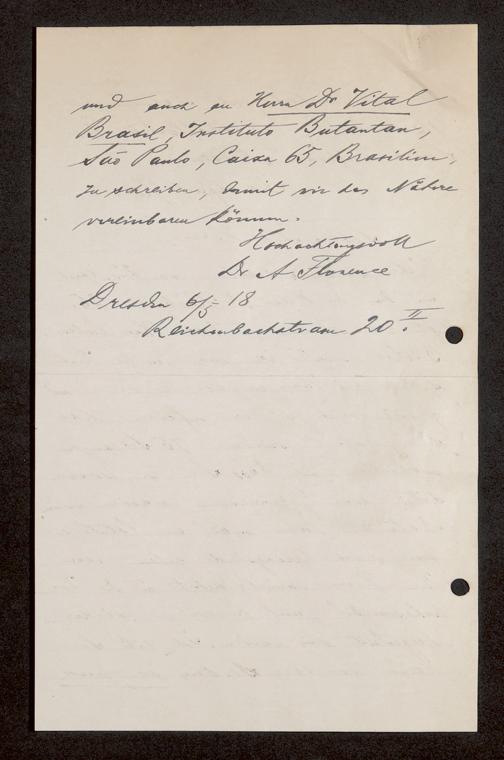 und auch an Herrn Dr Vital
Brasil, Instituto Butantan,
São Paulo, Caixa 65, Brasilien,
zu schreiben, damit wir das Nähere
vereinbaren können.
Hochachtungsvoll
Dr A Florence
Dresden 6/5 18
Reichenbachstrasse 20 II.